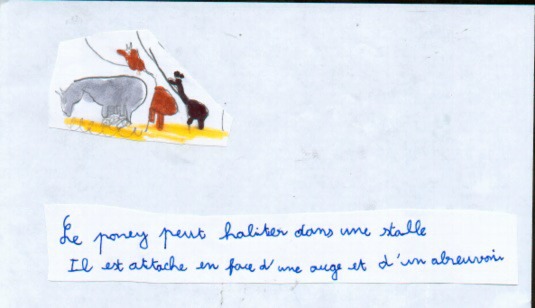 Le poney peut habiter dans une stalle
Il est attache en face d'une auge et d'un abreuvoir